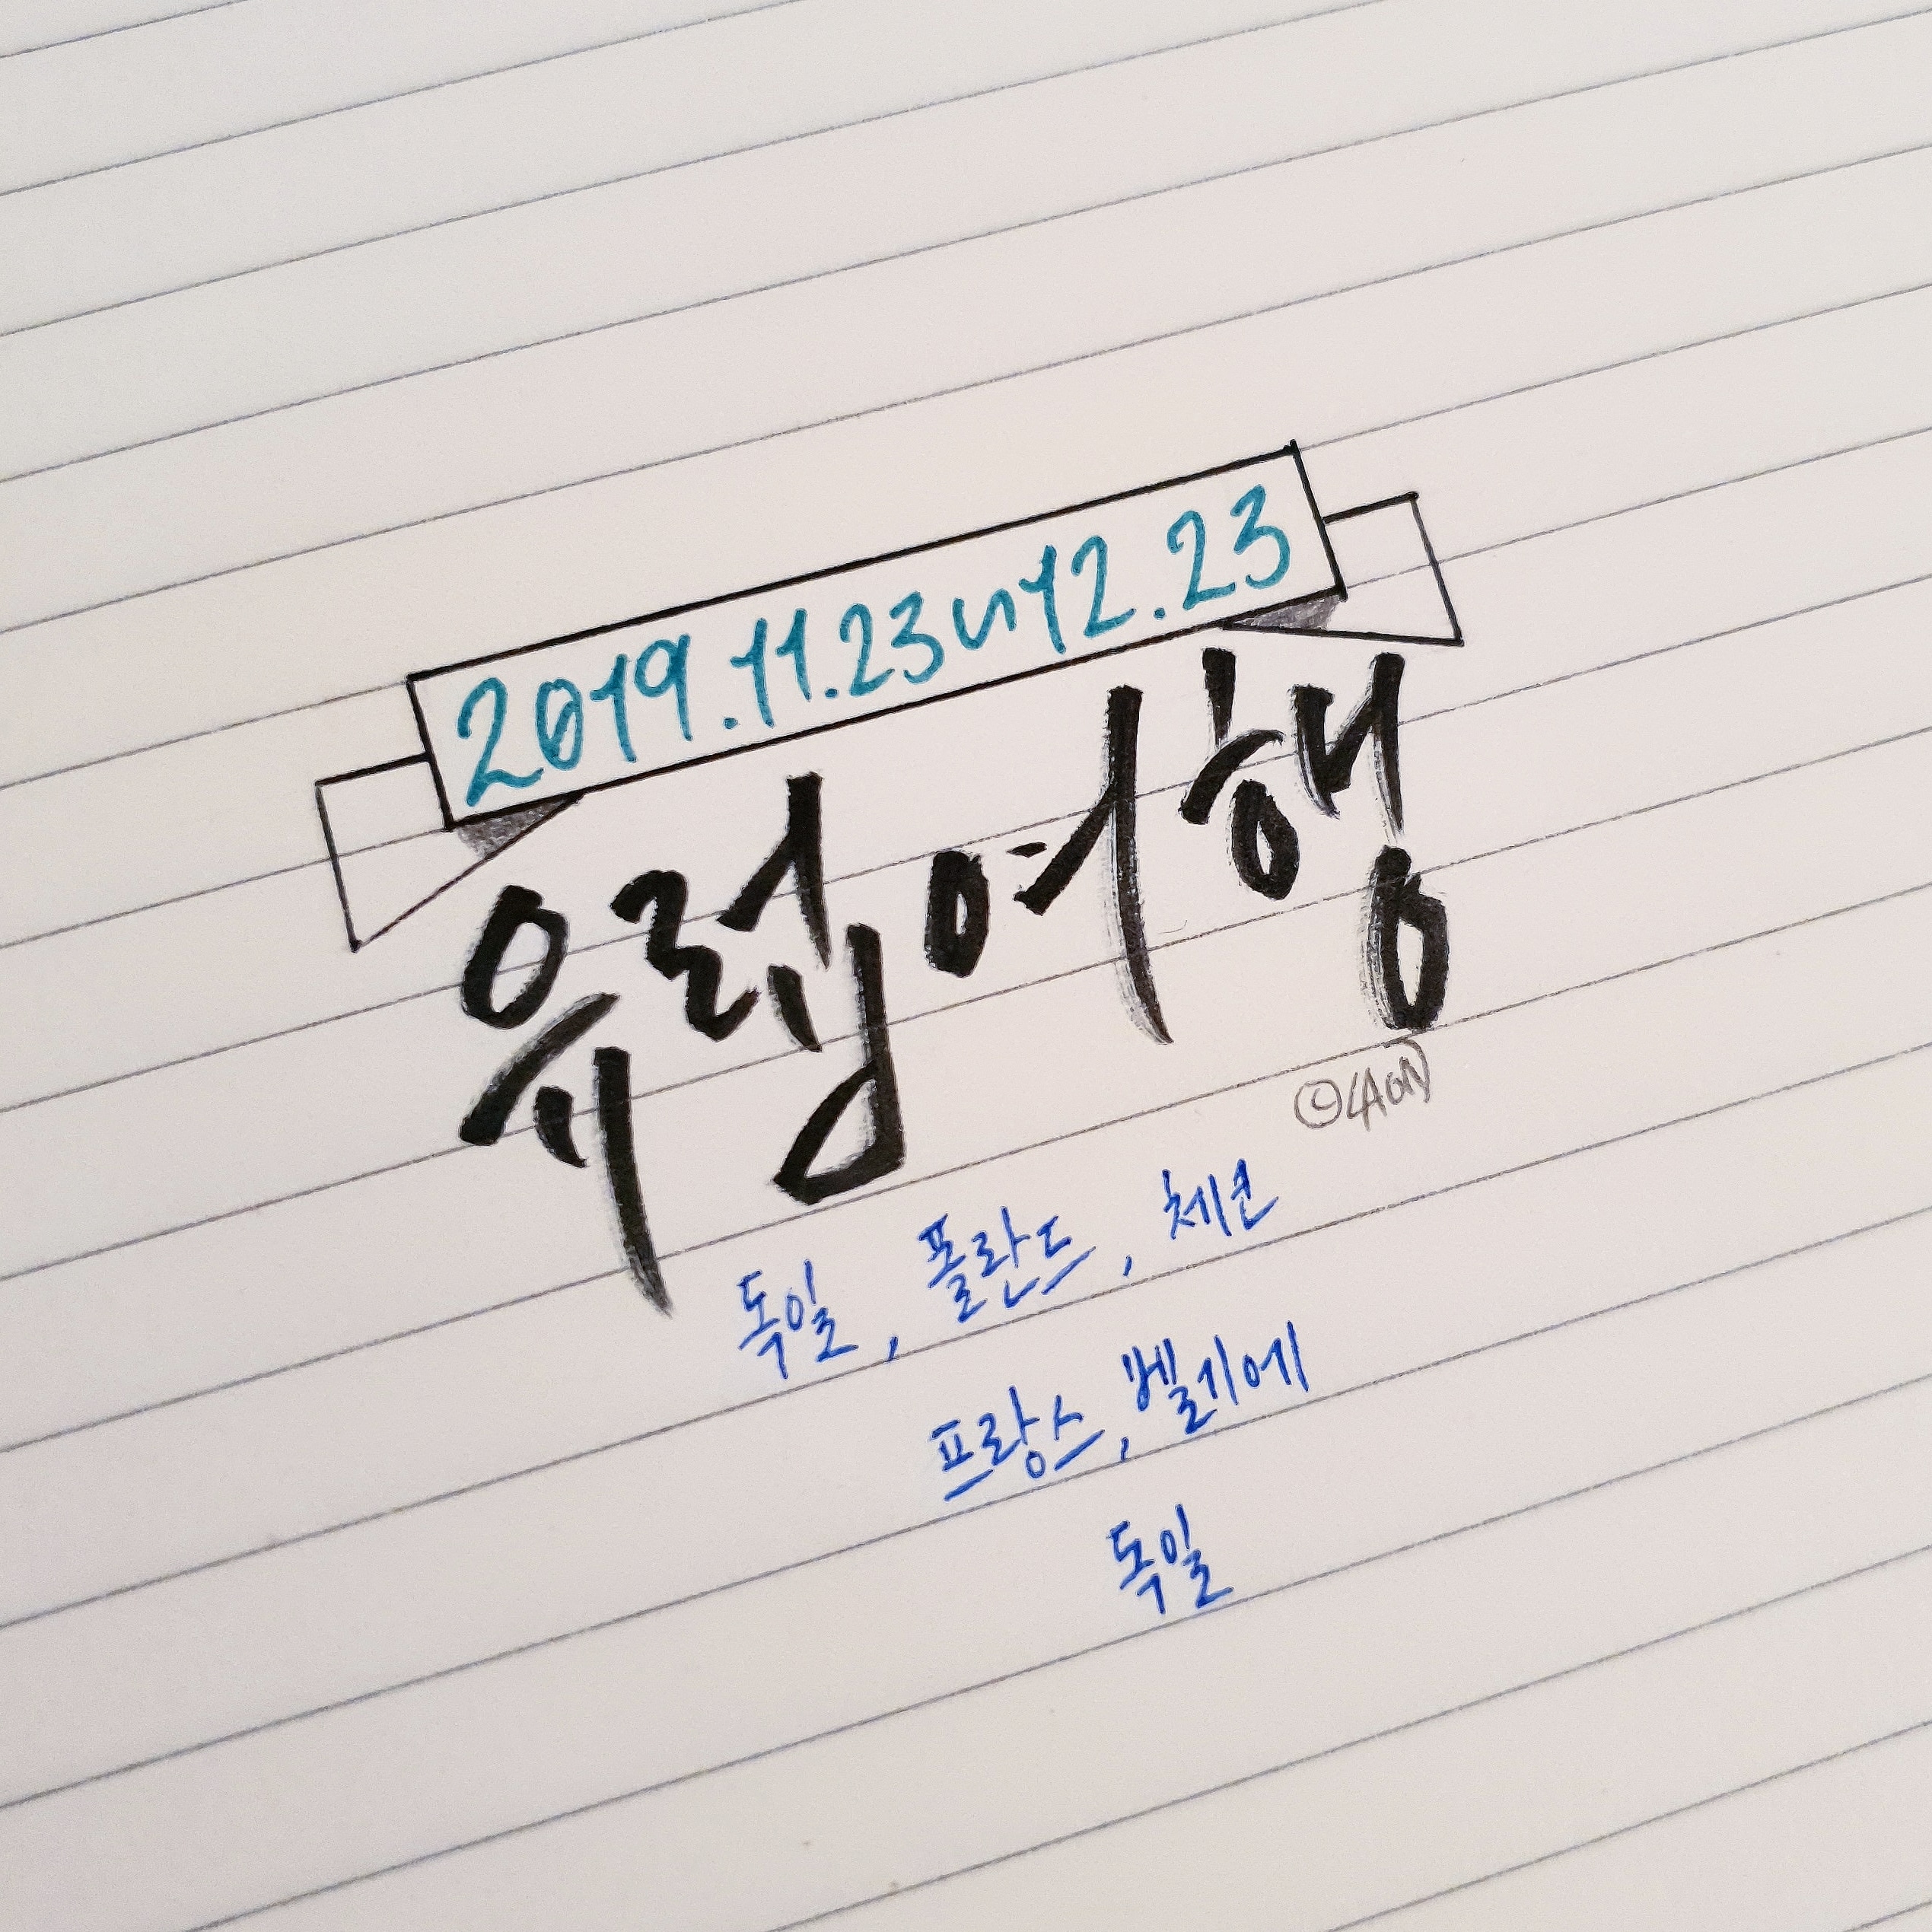 2019.11.23~12.23
유럽여행
©LAON
독일, 폴란드, 체코
프랑스, 벨기에
독일